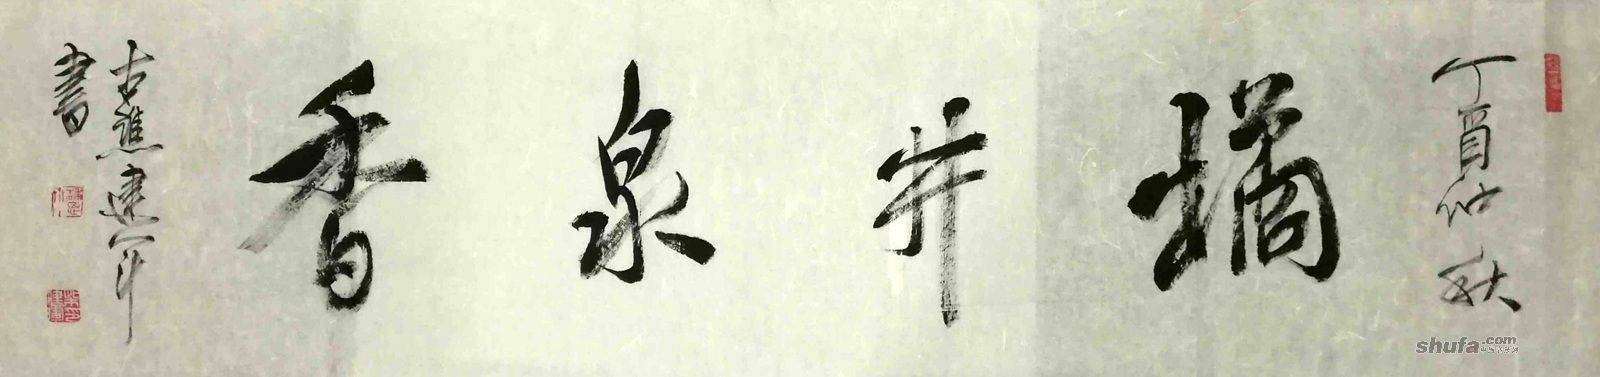 丁酉仲秋
橘井泉香
古譙建军
書
shufa.com